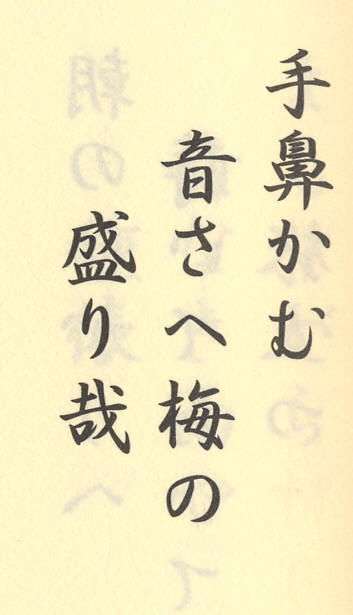 手鼻かむ
音さへ梅の
盛り哉